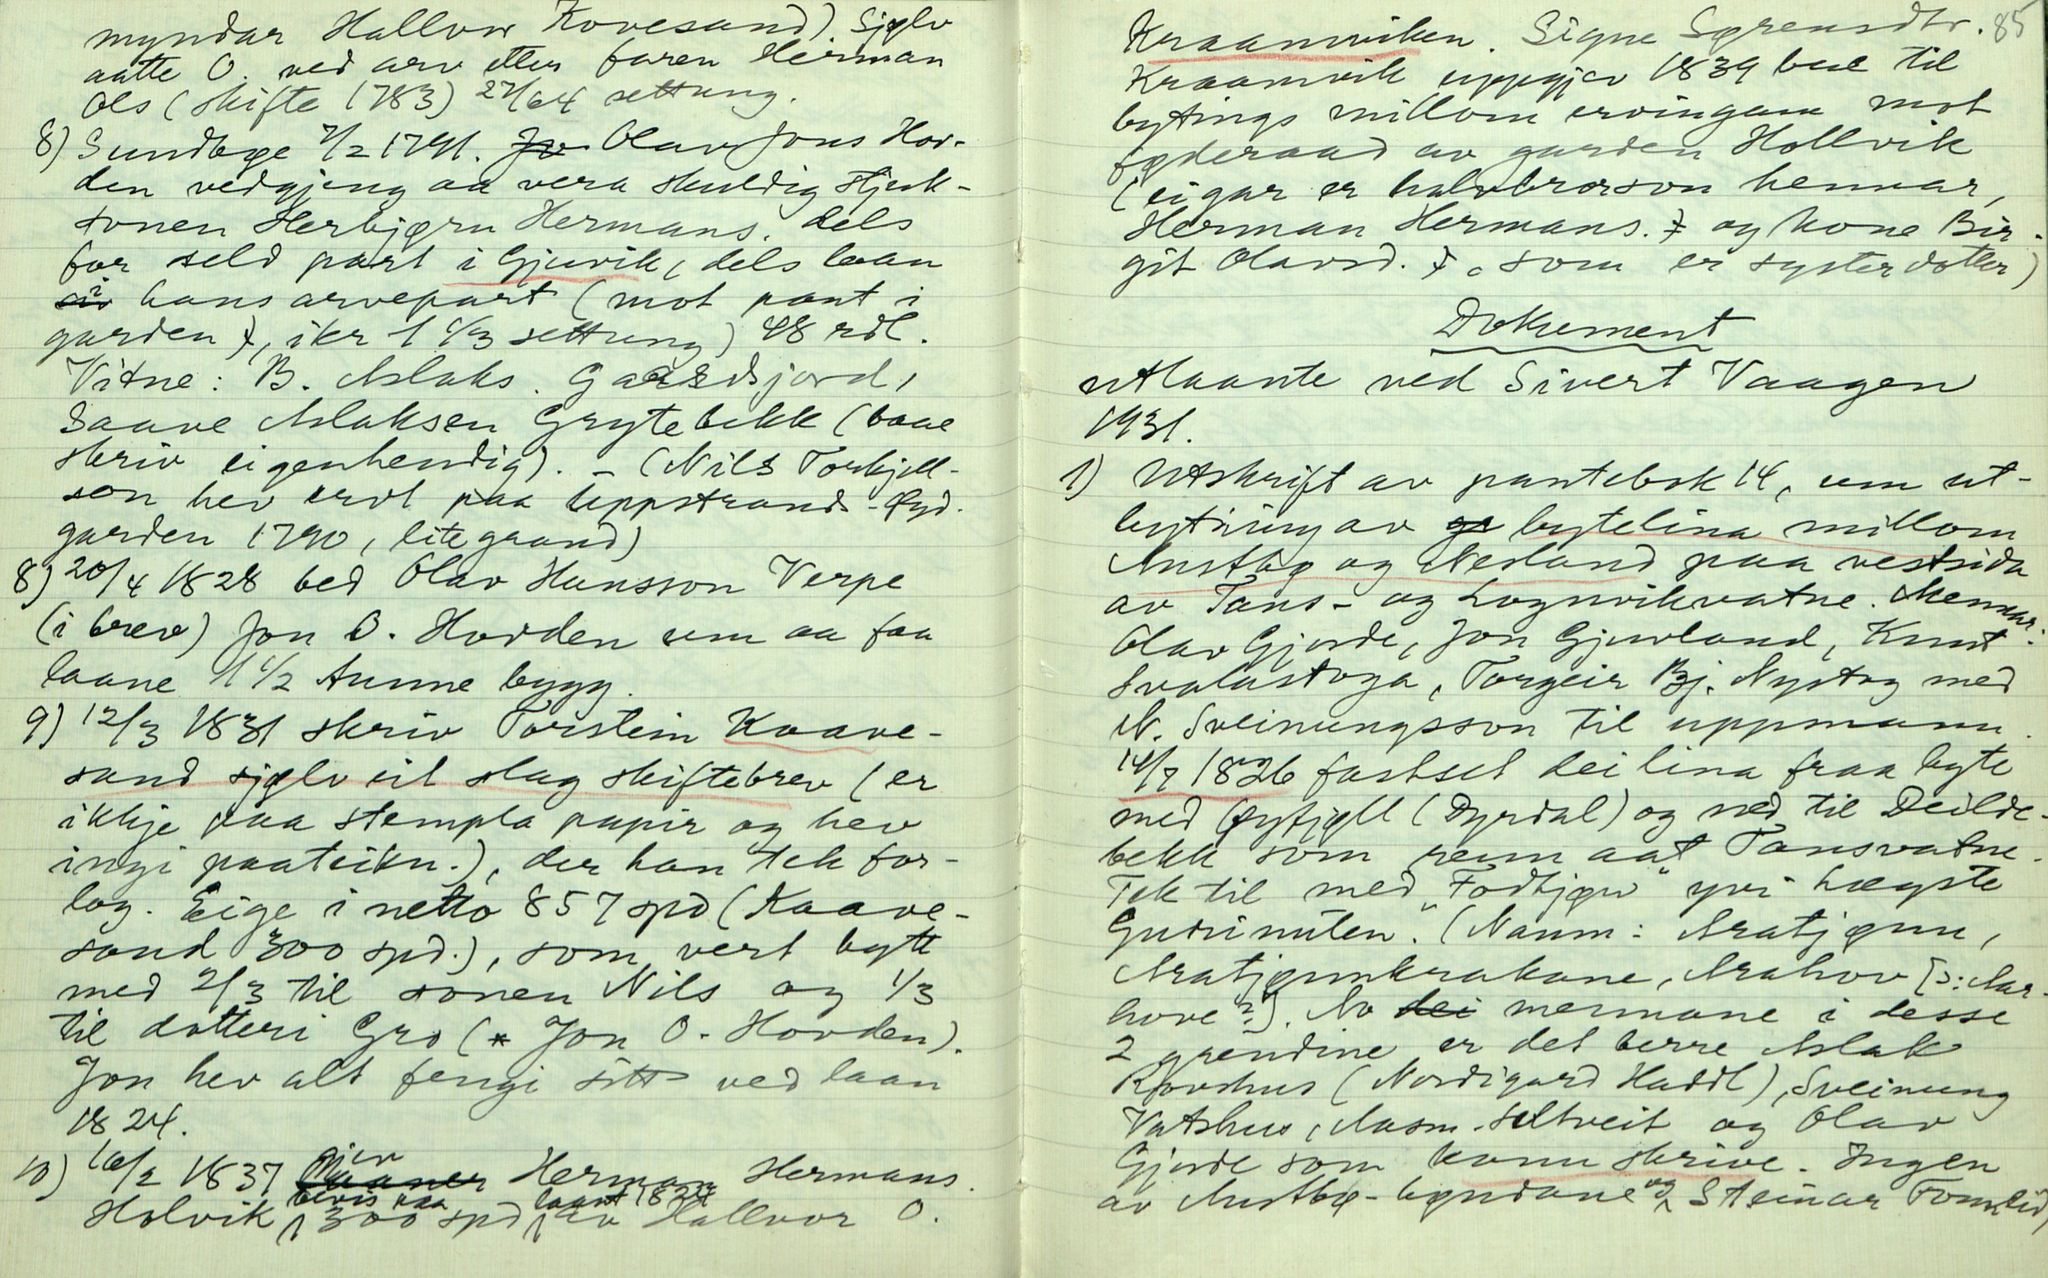 myndar Hallvor Kovesand) Sjølv
aatte O. ved arv etter faren Herman
Ols (skifte 1783) 27/64 settung.
8) Sundbøe 7/2 1791. Jo Olav Jons Hov-
den vedgjeng aa vera skuldig stjuk-
sonen Herbjørn Hermans. dels
for seld part i Gjuvik, dels laan
i hans arvepart (mot pant i
garden), ikr 1 1/3 settung) 48 rdl.
Vitne: B. Aslaks. Gaardsjord,
Saave Aslaksen Grytebekk (baae
skriv eigenhendig). - (Nils Torkjell-
son hev ervt paa Uppstrands-Øyd.
garden 1790, lite grand)
8) 20/4 1828 bed Olav Hansson Verpe
(i brev) Jon O. Hovden um aa faa
laane 1 1/2 tunne bygg.
9) 12/3 1831 skriv Torstein Kaave-
sand sjølv eit slag skiftebrev (er
ikkje paa stempla papir og hev
ingi paateikn.), der han tek for-
log. Eige i netto 857 spd (Kaave-
sand 300 spd.), som vert bytt
med 2/3 til sonen Nils og 1/3
til dotteri Gro (* Jon O. Hovden).
Jon hev alt fengi sitt ved laan
1824.
10) 16/2 1837 gjev Herman Hermans.
Holvik bevis paa 300 spd laant 1824 av Hallvor O.
85
Kraamviken. Signe Sørensdtr.
Kraamvik uppgjev 1839 bul til
bytings millom ervingane mot
føderaad av garden Hollvik
(eigar er halvbrorson hennar,
Herman Hermans. og kone Bir-
git Olavsd. som er systerdotter)
Dokument
utlaante ved Sivert Vaagen
1931.
1) Utskrift av pantebok 14, um ut-
bytning av bytelina millom
Austbø og Nesland paa vestsida
av Tans- og Lognvikvatne. Mennar:
Olav Gjorde, Jon Gjuvland, Knut
Svalastoga, Torgeir Bj. Nystog med
N. Sveinungsson til uppmann.
14/7 1826 fastset dei lina fraa byte
med Øyfjell (Dyrdal) og ned til Deilde-
bekk som renn aat Tansvatne.
Tek til med "Fodtjønn" yvi høgste
Gudrinuten. (Namn: Aratjønn,
Aratjønnkrakane, Arahov [ɔ: Aar-
hove?]. Av dei mennane i desse
2 grendine er det berre Aslak
Rjovhus (Nordigard Haddl), Sveinung
Vatshus, Aasm. Seltveit og Olav
Gjorde som kann skrive. Ingen
av Austbø-bøndane og Steinar Fonnlid